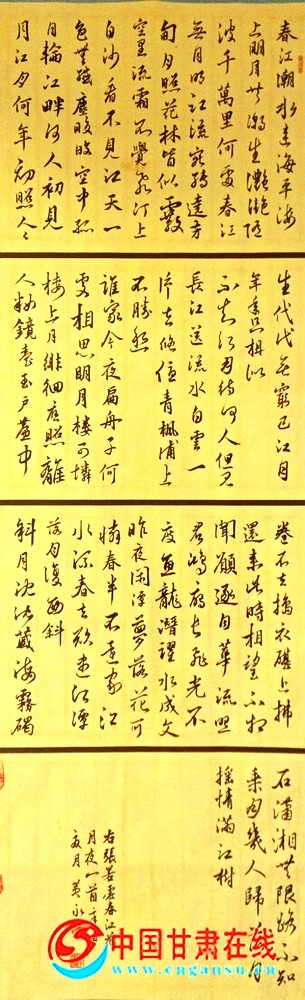 春江潮水連海平海
上明月共潮生灩灩隨
波千萬里何處春江
無月明江流宛轉遶芳
甸月照花林皆似霰
空里流霜不覺飛汀上
白沙看不見江天一
色無纖塵皎皎空中孤
月輪江畔何人初見
月江月何年初照人人
生代代無窮已江月
年年只相似
不知江月待何人但見
長江送流水白雲一
片去悠悠青楓浦上
不勝愁
誰家今夜扁舟子何
處相思明月樓可憐
樓上月徘徊應照離
人妝鏡臺玉戶簾中
卷不去搗衣砧上拂
還來此時相望不相
聞願逐月華流照
君鴻雁長飛光不
度魚龍潛躍水成文
昨夜閑潭夢落花可
憐春半不還家江
水流春去欲盡江潭
落月復西斜
斜月沈沈藏海霧碣
石瀟湘無限路不知
乘月幾人歸落月
搖情滿江樹
右張若虛春江花
月夜一首
月黃永
中国甘肃在线
www.cngansu.cn